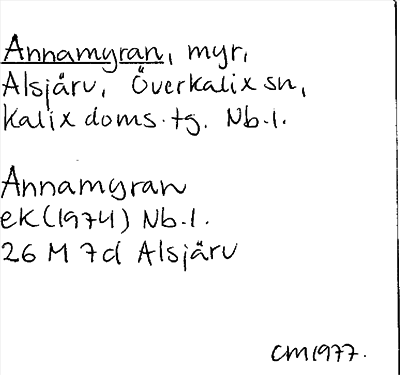 Annamyran, myr,
Alsjärv, Överkalix sn,
Kalix doms.tg. Nb.l.
Annamyran
ek(1974) Nb.l.
26 M 7d Alsjärv
CM1977.